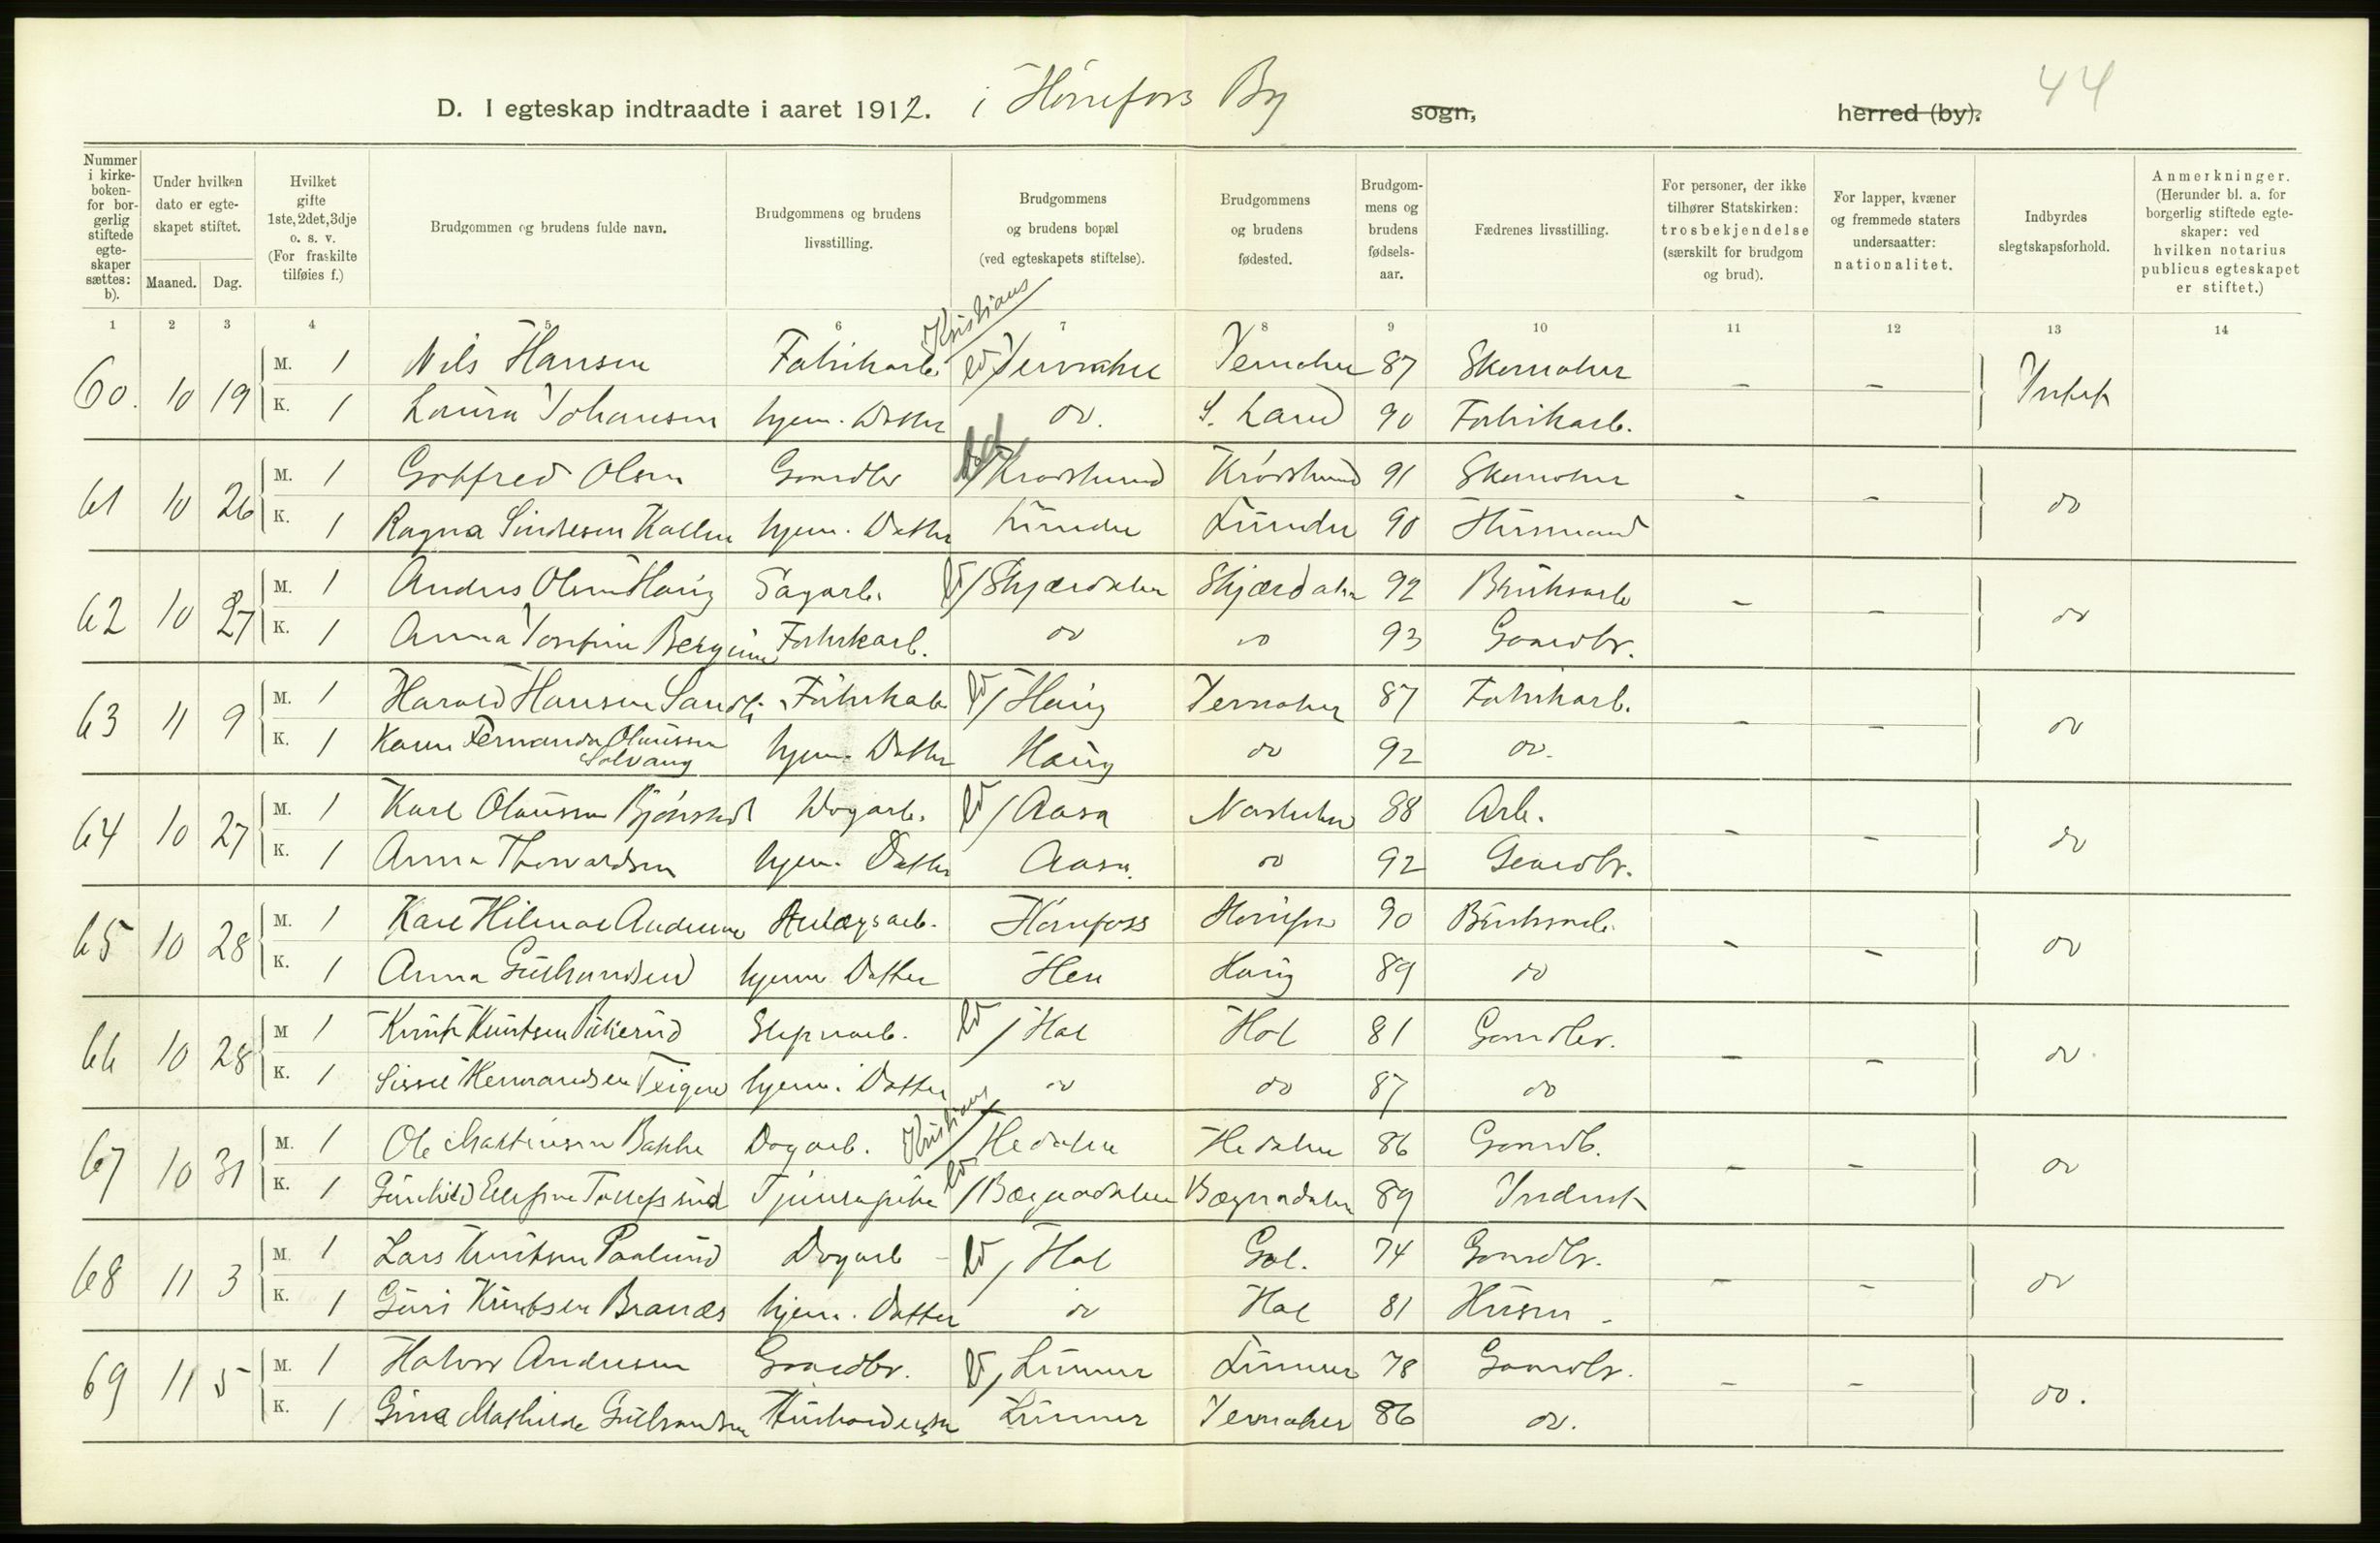 44
D. I egteskap indtraadte i aaret 1912. i Hønefoss By sogn, herred (by).
Nummer i kirke-boken- for bor-gerlig stiftede egte-skaper sættes: b).
Under hvilken dato er egte-skapet stiftet.
Maaned. Dag.
Hvilket gifte 1ste, 2det, 3dje o. s. v. (For fraskilte tilføies f.)
Brudgommen og brudens fulde navn.
Brudgommens og brudens livsstilling.
Brudgommens og brudens bopæl (ved egteskapets stiftelse).
Brudgommens og brudens fødested.
Brudgom-mens og brudens fødsels-aar.
Fædrenes livsstilling.
For personer, der ikke tilhører Statskirken: trosbekjendelse (særskilt for brudgom og brud).
For lapper, kvæner og fremmede staters undersaatter: nationalitet.
Indbyrdes slegtskapsforhold.
Anmerkninger. (Herunder bl. a. for borgerlig stiftede egte-skaper: ved hvilken notarius publicus egteskapet er stiftet.)
1 2 3 4 5 6 7 8 9 10 11 12 13 14
Kristians
60. 10 19 M. 1 Nils Hansen Fabrikarb. Jevnaker Jevnaker 87 Skomaker - - Intet
K. 1 Laura Johansen hjem. Datter do. S. Land 90 Fabrikarb.
61 10 26 M. 1 Gotfred Olsen Gaardbr Krødsherred Krødsherred 91 Skomaker - - do
K. 1 Ragna hjem. Datter Lunder Lunder 90 Husmand
62 10 27 M. 1 Anders Olsen Haug Sagarb. Skjærdalen Skjærdalen 92 Bruksarb - - do
K. 1 Anna Josefine Fabrikarb. do do 93 Gaardbr.
63 11 9 M. 1 Harald Hansen Fabrikarb Haug Jevnaker 87 Fabrikarb. - - do
K. 1 Karen Fernanda Olaussen Solvang hjem. Datter Haug do 92 do.
64 10 27 M. 1 Karl Olaussen Dagarb. Aasa Norderhov 88 Arb. - - do
K. 1 Anna Thorvaldsen hjem. Datter Aasa. do 92 Gaardbr.
65 10 28 M. 1 Karl Hilmar Andersen Anlægsarb. Hønefoss Hønefos 90 Bruksarb. - - do
K. 1 Anna Gulbrandsen hjem. Datter Hen Haug 89 do
66 10 28 M 1 Knut Knutsen Hol Hol 81 Gaardbr. - - do
K. 1 Sissel Hermandsen Teigen hjem. Datter do do 87 do
67 10 31 M. 1 Ole Martinsen Bakke Dagarb. Kristians Hedalen Hedalen 86 Gaardb. - - do
K. 1 Gunhild Tjenestepike Bægnadalen Bægnadalen 89 Inderst
68 11 3 M. 1 Lars Knutsen Dagarb Hol Gol. 74 Gaardbr. - - do
K. 1 Guri Knutsen hjem. Datter do Hol 81 Husm -
69 11 5 M. 1 Halvor Andersen Gaardbr. Lunner Lunner 78 Gaardbr. - - do.
K. 1 Gina Mathilde Gulbrandsen Lunner Jevnaker 86 do.